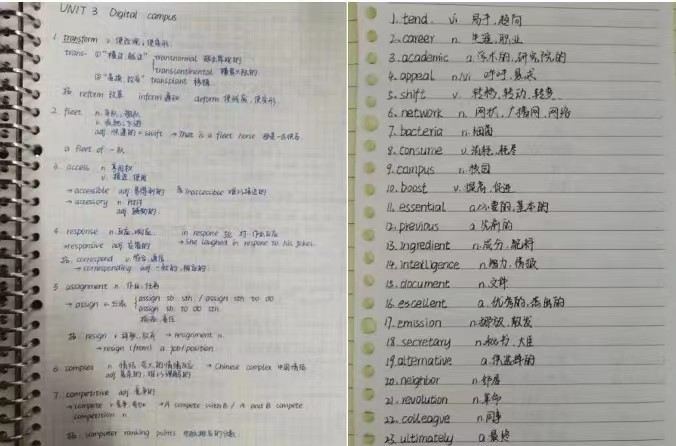 UNIT 3 Digital campus
1. transform v. 使改观,使变形
trans- ①"横过,超过" transnormal 超出常规的
transcontinental 横贯大陆的
②"变换,改变" transplant 移植
拓: reform 改革 inform 通知 deform 使残废,使变形
2. fleet n. 车队,舰队
adj. 快速的 = swift → That is a fleet horse
a fleet of 一队
3. access n.
v. 接近,使用
→ accessible adj. 易得到的 反 inaccessible 难以接近的
→ accessory n. 附件
adj. 辅助的
4. response n. 反应,响应 in respone to 对…作出反应
→ responsive adj. → She laughed in respone to his jokes.
拓. correspond v. 符合,通信
→ corresponding adj. 一致的,相应的
5 assignment n. 作业,任务
→ assign v. 分派 assign sb sth / assign sth to do
assign sb to do sth
指派,委任
拓: resign v. 辞职,放弃 → resignment n.
→ resign (from) a job/position.
6. complex n. 情结 → Chinese complex 中国情结
adj. 复杂的,难以理解的
7. competitive adj. 竞争的
→ compete v. 竞争 → A compete with B / A and B compete
competition n.
拓: computer ranking points 电脑排名的分数
1. tend. vi 易于,趋向
2. career n. 生涯,职业
3. academic a.学术的,研究院的
4. appeal n./vi 呼吁,恳求
5. shift v. 转移,转动,转变
6. network n. 网状,广播网,网络
7. bacteria n.细菌
8. consume v.消耗,耗尽
9. campus n.校园
10. boost v. 提高,促进
11. essential a.必要的,基本的
12. previous a.先前的
13. ingredient n.成分,配料
14. intelligence n.智力,情报
15. document n.文件
16. escellent a.优秀的,杰出的
17. emission n.排放,散发
18. secretary n.秘书,大臣
19. alternative a.供选择的
20. neighbor n.邻居
21. revolution n.革命
22. colleague n.同事
23. ultimately a.最终